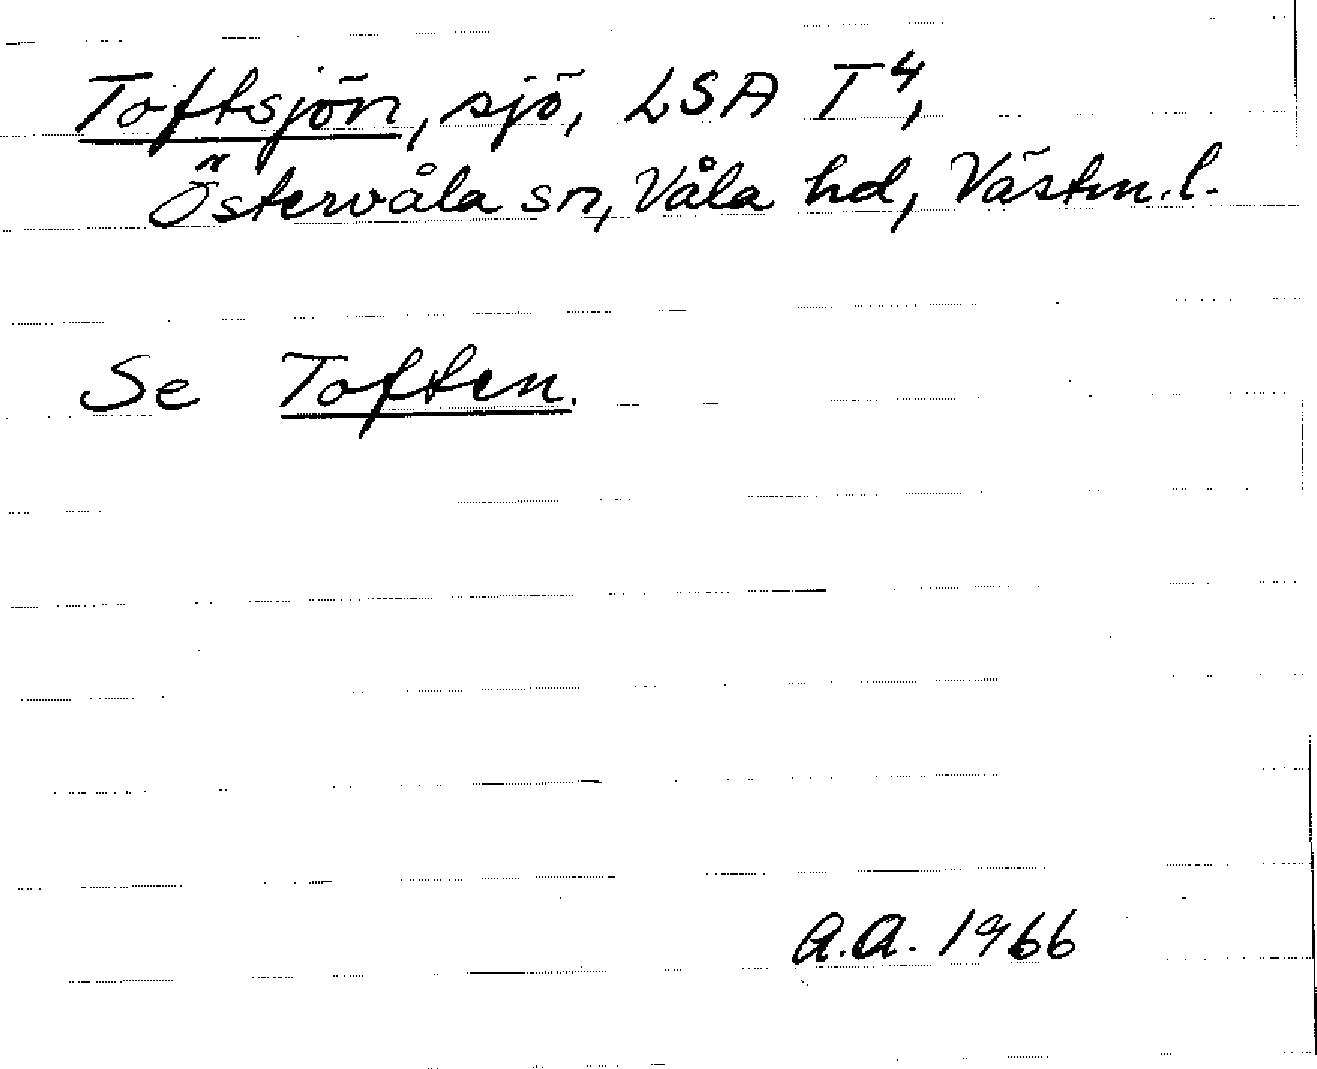 Toftsjön, sjö, LSA T⁴,
Östervåla sn, Våla hd, Västm.l.
Se Toften.
A.A. 1966